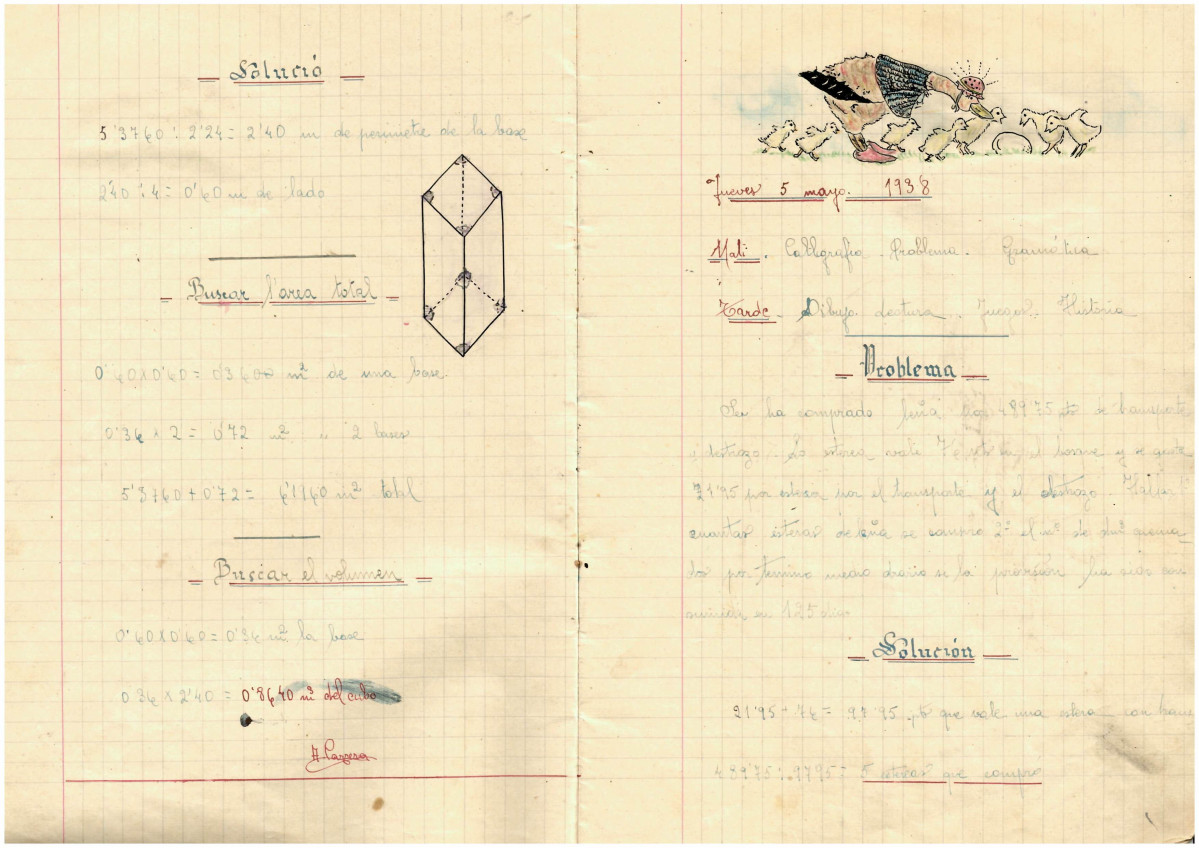 Solució
5'3760 : 2'24 = 2'40 m de perimetre de la base
2'40 : 4 = 0'60 m de lado
Buscar l'area total
0'60 x 0'60 = 0'3600 m² de una base
0'36 x 2 = 0'72 m² " 2 bases
5'3760 + 0'72 = 6'1160 m² total
Buscar el volumen
0'60 x 0'60 = 0'36 m² la base
0'36 x 2'40 = 0'8640 m³ del cubo
Jueves 5 mayo. 1938
Mati. Calligrafia. Problema. Gramática
Tarde. Dibujo. Lectura. Juegos. Historia
Problema
Se ha comprado leña 489'75 pts de transporte
y destrozo. La esterea vale 76 pts en el bosque y se
21'95 por esterea por el transporte y el destrozo. Hallar
cuantas estereas de leña se compro 2º el nº de dm³ quema
dos por termino medio diario si la provisión ha sido con
sumida en 125 dias
Solución
21'95 + 76 = 97'95 pts que vale una esterea con
489'75 : 97'95 = 5 estereas que compro